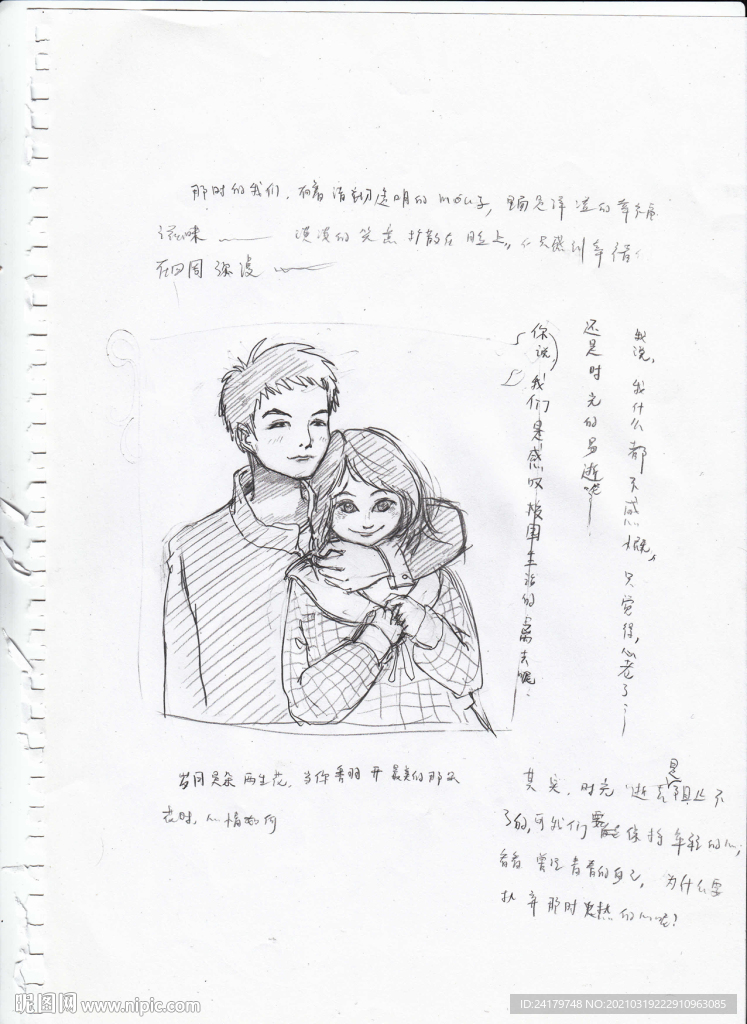 那时的我们,有着清彻透明的móu子,洋溢的幸福
滋味 淡淡的笑意扩散在脸上,
在四周弥漫
你说,我们是感叹校园生活的离去呢
还是时光的易逝呢
我说,我什么都不感慨,只觉得,心老了
岁月是朵两生花,当你看明开最美的那朵
花时,心情如何
其实,时光逝去是阻止不
了的,可我们要能保持年轻的心,
看看曾经青春的自己,为什么要
扒弃那时炽热的心呢?
昵图网 www.nipic.com
ID:24179748 NO:20210319222910963085